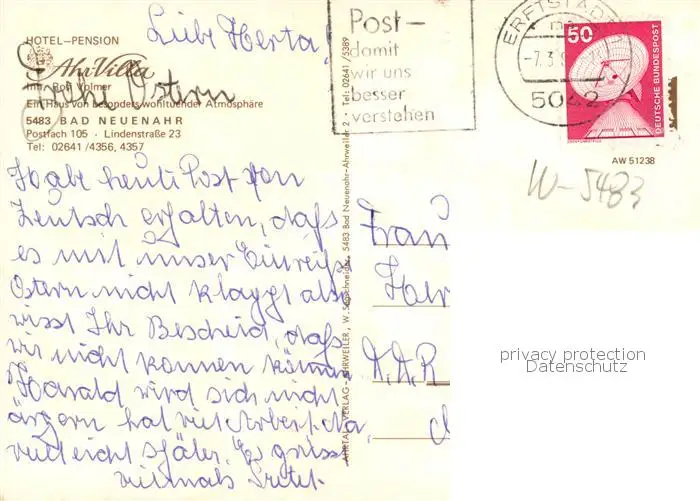 Liebe Herta!
HOTEL-PENSION
Ahr Villa
Inh. Rolf Volmer
Frohe Ostern
Ein Haus von besonders wohltuender Atmosphäre
5483 BAD NEUENAHR
Postfach 105 · Lindenstraße 23
Tel: 02641 /4356, 4357
Habe heute Post von
erhalten, daß
es mit unser Einreiße
Ostern nicht klappt also
wisst Ihr Bescheid, daß
wir nicht kommen können
Harald wird sich nicht
ärgern hat viel Arbeit. Na,
vielleicht später. Es grüsst
vielmals
AHRTAL-VERLAG-AHRWEILER, 5483 Bad Neuenahr-Ahrweiler 2 · Tel: 02641/5389
Post-
damit
wir uns
besser
verstehen
ERFTSTADT
5042
50
DEUTSCHE BUNDESPOST
AW 51238
W-5483
Frau
Her
D.D.R
privacy protection
Datenschutz